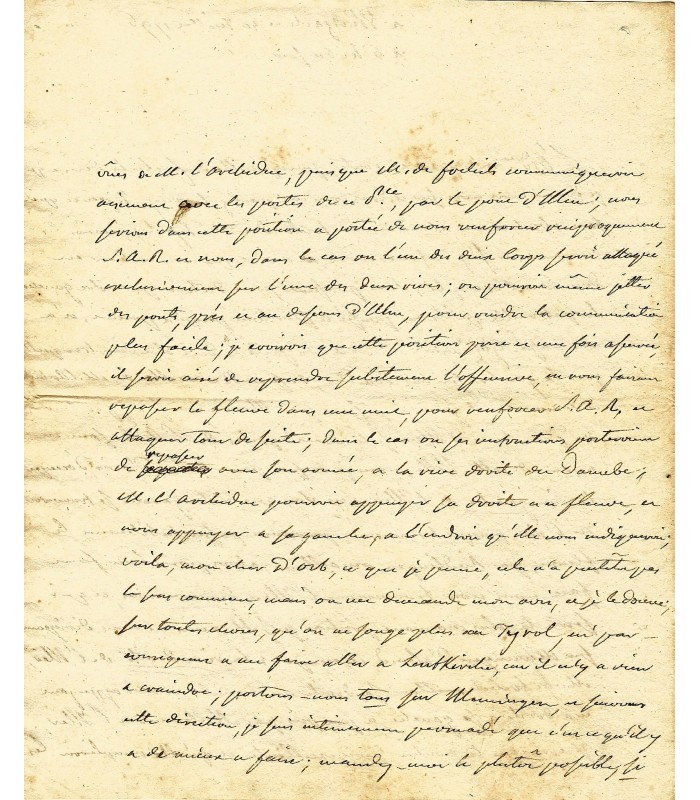 de M. l'archiduc, puisque M. de communiqueroit
aisément avec les postes de ce P.ce, par le pont d'Ulm; nous
serions dans cette position a portée de nous renforcer reciproquement
S. A. R. et nous, dans le cas ou l'un des deux corps seroit attaqué
exclusivement sur l'une des deux rives; on pourroit même jetter
des ponts, près et au dessous d'Ulm, pour rendre la communication
plus facile; je crois que cette position prise et une fois assurée,
il seroit aisé de reprendre subitement l'offensive, en nous faisant
repasser le fleuve dans une nuit, pour renforcer S. A. R. et
attaquer tout de suite; dans le cas ou ses instructions porteroient
de repasser avec son armée, a la rive droite du Danube;
M. l'archiduc pourroit appuyer sa droite au fleuve, et
nous appuyer a sa gauche, a l'endroit qu'elle nous indiqueroit;
voila, mon cher d'Orb, ce que je pense, cela n'a peutêtre pas
le sens commun, mais on me demande mon avis, et je le donne;
sur toutes choses, qu'on ne songe plus au Tyrol, ni par
consequent a me faire aller a Leutkirche, car il n'y a rien
a craindre; portons-nous tous sur Memmingen, et suivons
cette direction, je suis intimement persuadé que c'est ce qu'il y
a de mieux a faire; mandez-moi le plutôt possible, si